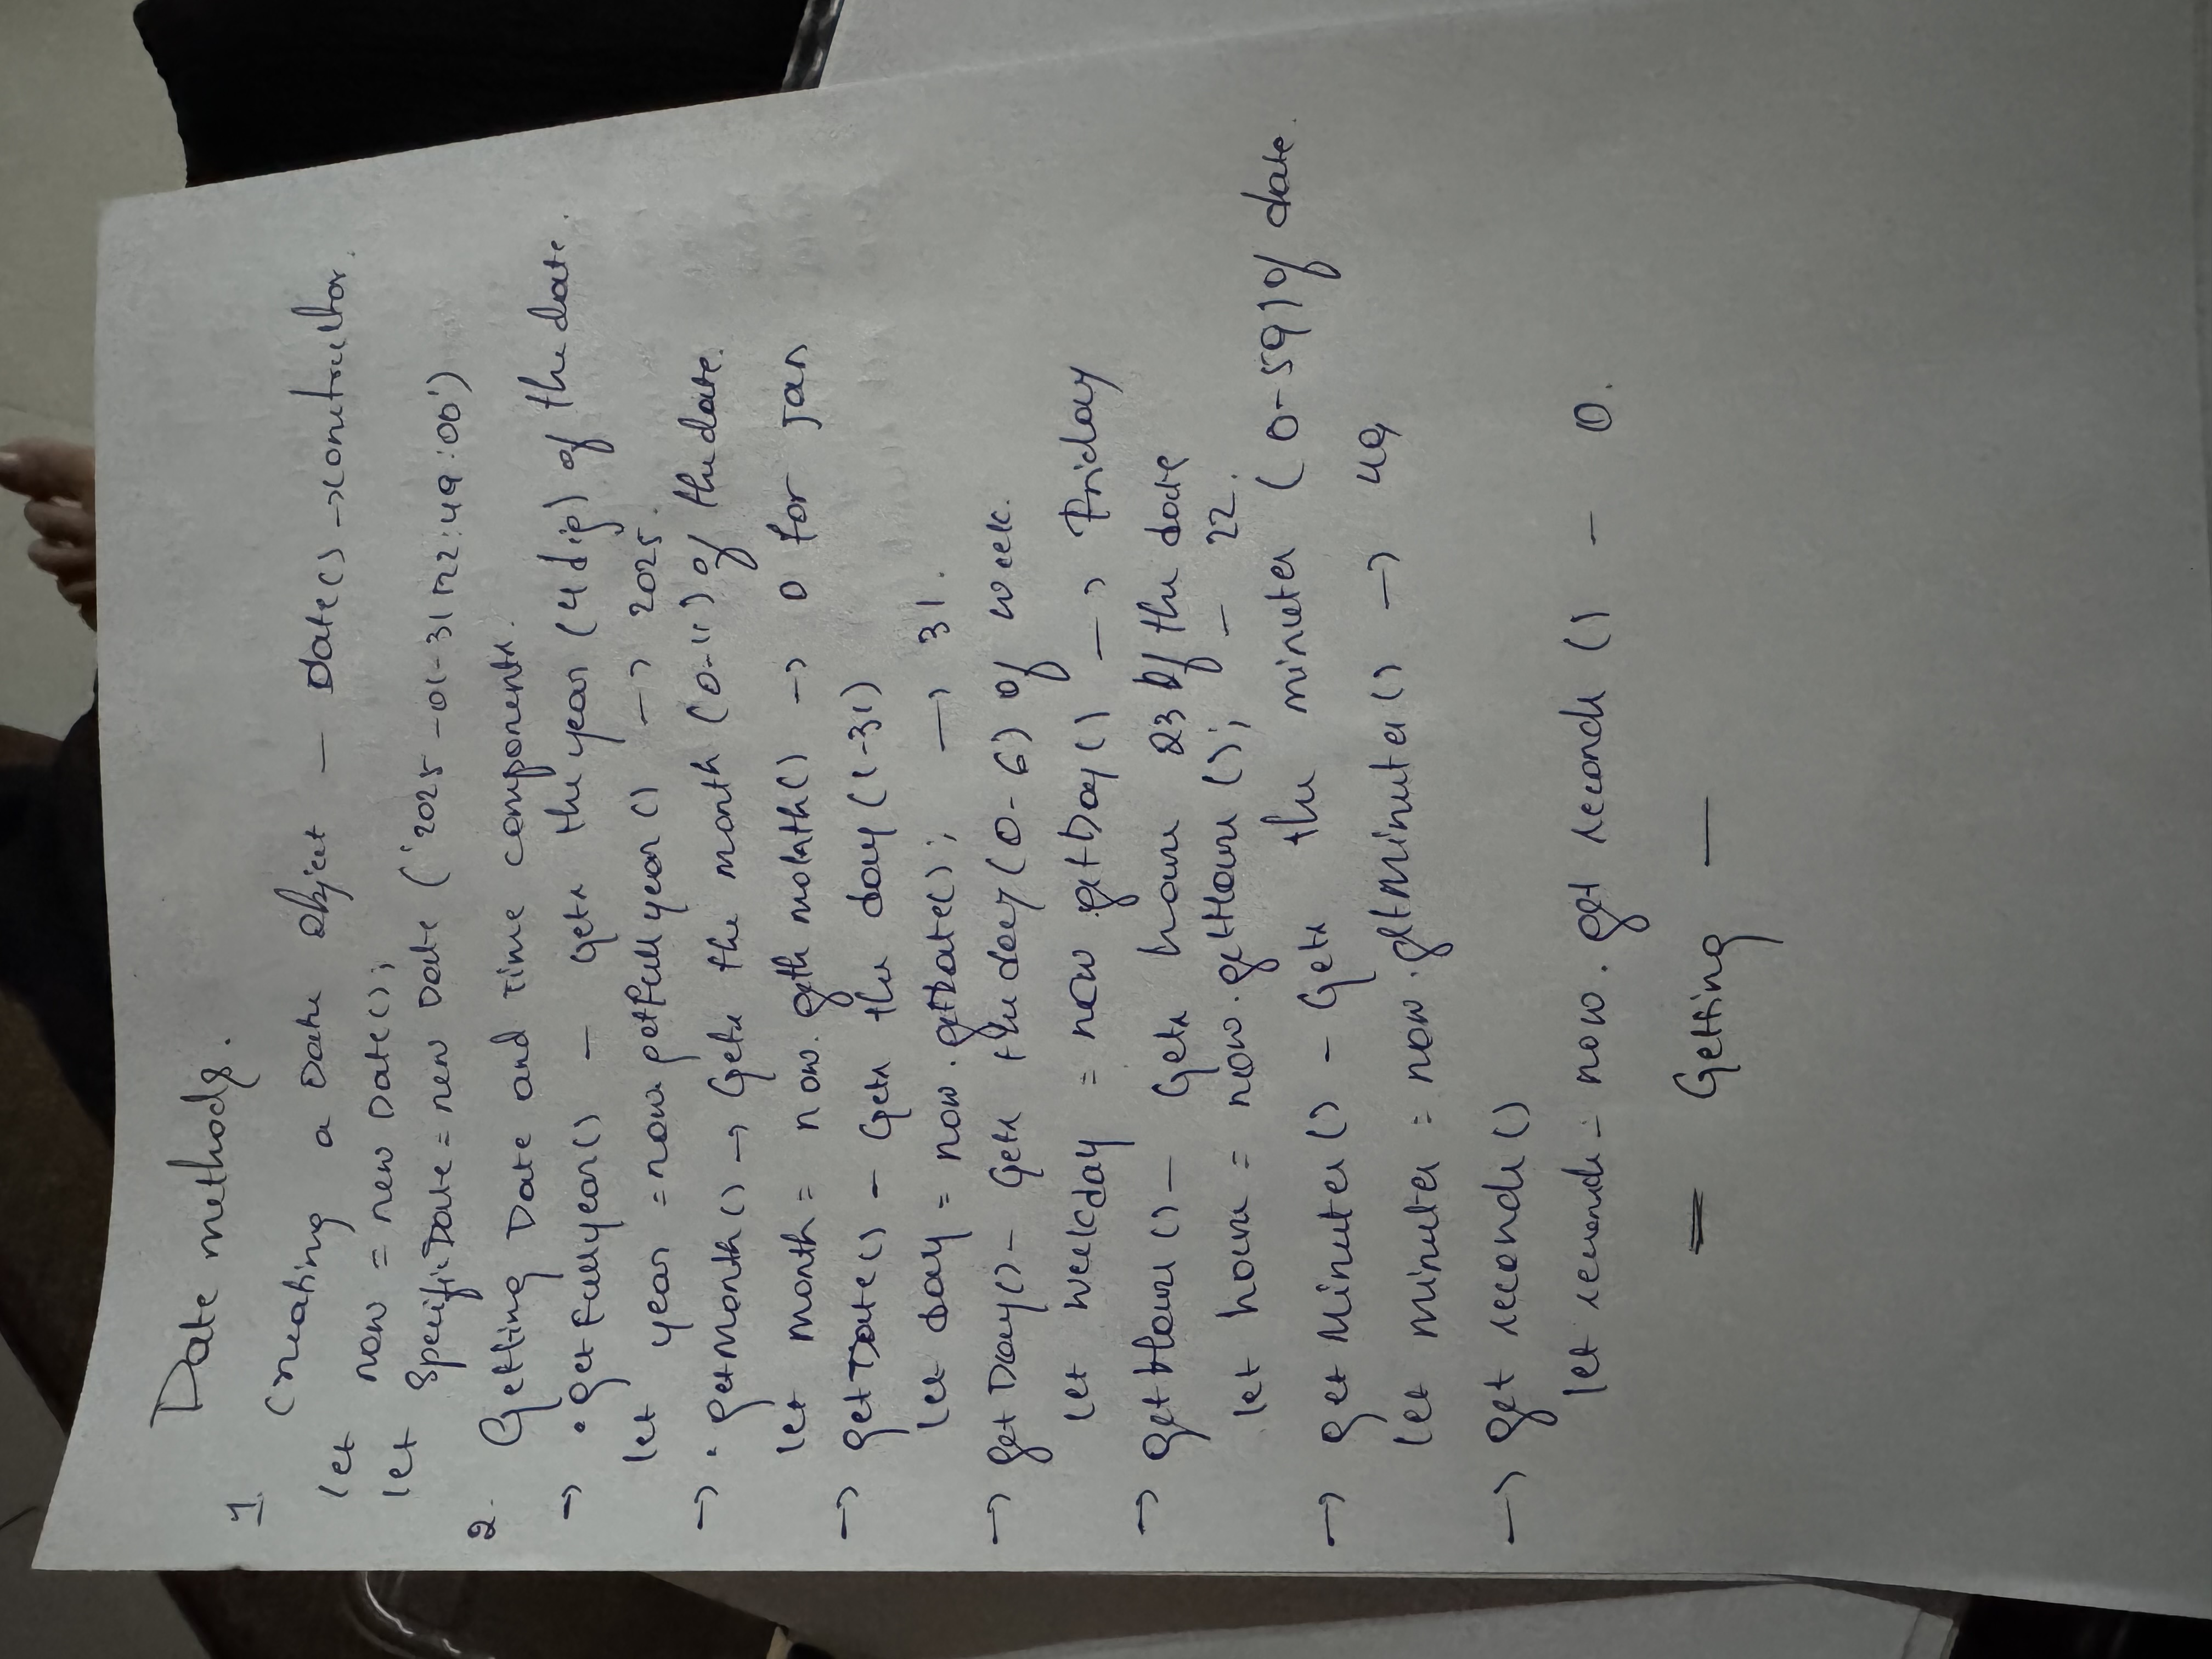 Date methods.
1.
Creating a Date Object — Date() → constructor.
let now = new Date();
let SpecificDate = new Date ('2025-01-31T22:49:00')
2. Getting Date and Time components.
→ .getFullyear() — Gets the year (4 dig) of the date.
let year = now.getFullyear() → 2025.
→ . getMonth() → Gets the month (0-11) of the date.
let month = now. geth molnth() → 0 for Jan
→ getDate() - Gets the day (1-31)
let day = now.getDate(); → 31.
→ getDay() - Gets the day (0-6) of week.
let weekday = now getDay() → Friday
→ getHours() - Gets hours 23 Of the date
let hours = now.getHours(); - 22.
→ getMinutes() - Gets the minutes (0-59) of date.
let minutes = now.getMinutes() → 49
→ get seconds()
let seconds = now. get seconds () - 0.
= Getting —